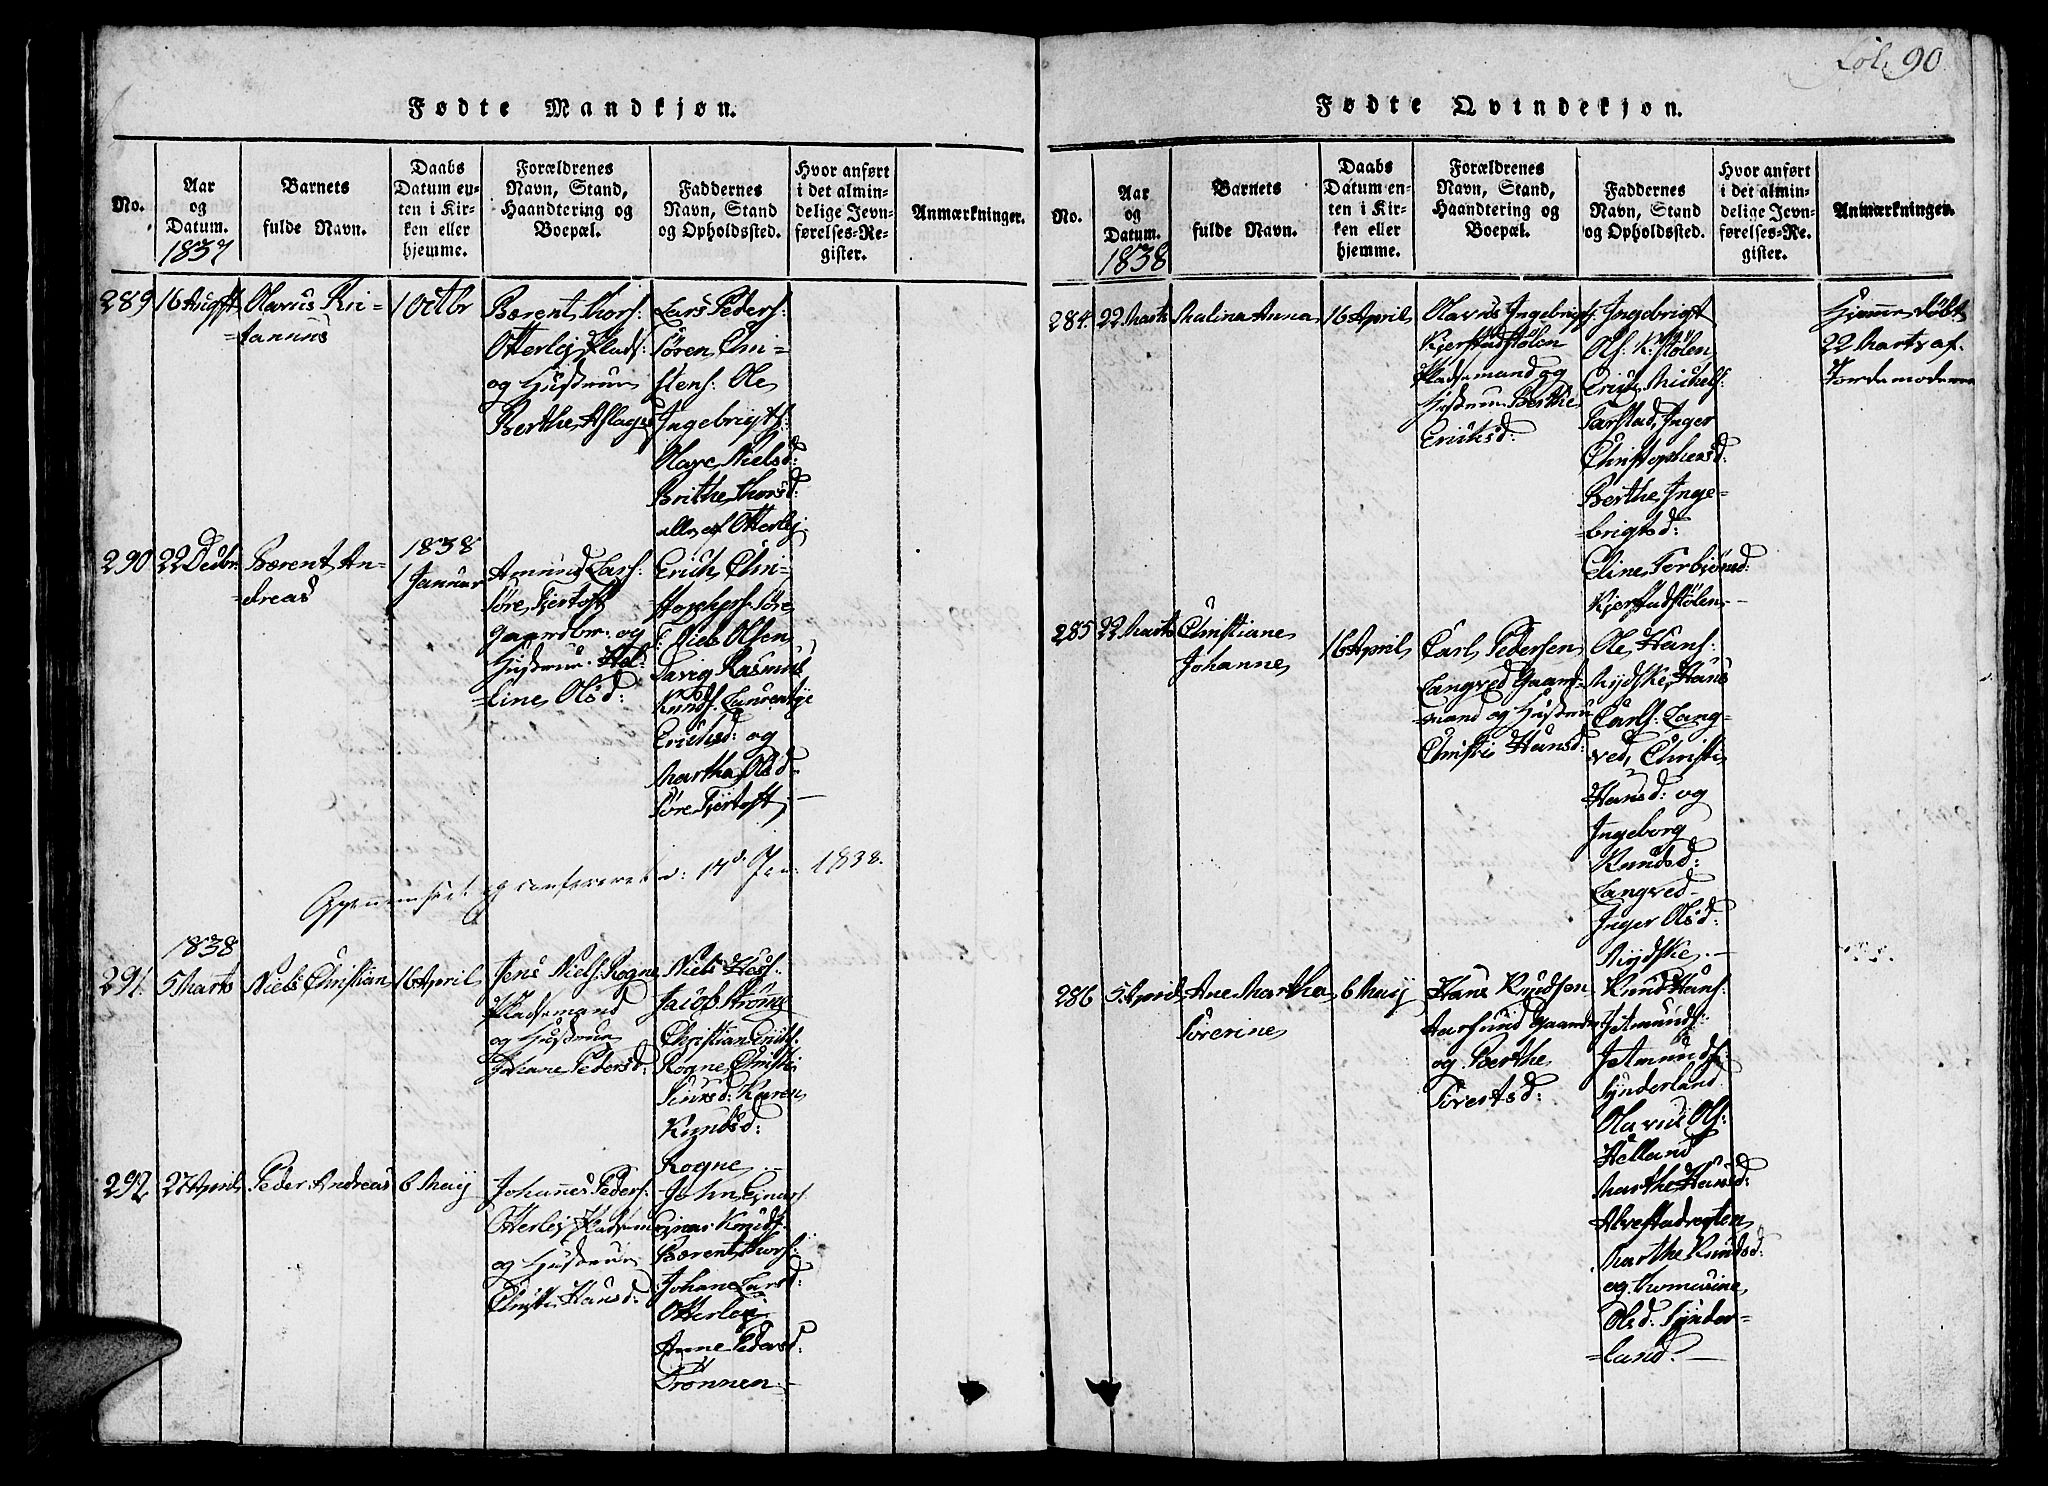 Fol. 90
Fødte Mandkjøn.
No.
Aar
og
Datum.
1837
Barnets
fulde Navn.
Daabs
Datum en-
ten i Kir-
ken eller
hjemme.
Forældrenes
Navn, Stand,
Haandtering og
Boepæl.
Faddernes
Navn, Stand
og Opholdssted.
Hvor anført
i det almin-
delige Jevn-
førelses-Re-
gister.
Anmærkninger.
289
16 Augst
Olavus Kri-
=tianus
1 Octbr
Bærent Thors:
Otterlej Plads:
og Hustrue
Berthe Aslags
Lars Peders:
Søren Chri-
stens: Ole
Ingebrigts:
Olave Nielsd:
Brithe Thorsd:
alle af Otterlej
290
22 Decbr
Bærent An-
=dreas
1838
1 Januar
Amund Lars:
Søre Fjertoft
Gaardbr: og
Hustrue
=line Olsd:
Erich Chri-
stophers: Søre
F: Niels Olsen
Rasmus
Knuds:
Erichsd: og
Martha Olsd
Søre Fjertoft
Gjennemseet og confereret d: 17d Jan: 1838.
1838
291.
5 Marts
Niels Christian
16 April
Jens Niels: Rogne
Pladsemand
og Hustrue
Johane Pedersd:
Niels Hans:
Jacob
Christian Erichs:
Rogne, Christi
Siursd: Karen
Knudsd:
Rogne
292
27 April
Peder Andreas
6 Maij
Johannes Peders:
Otterlej Pladsm
og Hustrue
Christi Hansd:
John Ejnars:
Ejnar Knuds:
Bærent Thors:
Johane Larsd:
Otterlej
Anne Pedersd:
Drønnen
Fødte Qvindekjøn.
No.
Aar
og
Datum.
1838
Barnets
fulde Navn.
Daabs
Datum en-
ten i Kir-
ken eller
hjemme.
Forældrenes
Navn, Stand,
Haandtering og
Boepæl.
Faddernes
Navn, Stand
og Opholdssted.
Hvor anført
i det almin-
delige Jevn-
førelses-Re-
gister.
Anmærkninger.
284.
22 Marts
Malina Anna
16 April
Olavus Ingebrigts:
Kjerstadstølen
Pladsemand og
Hustrue Berthe
Erichsd:
Ingebrigt
Ols: K:stølen
Erich Michels:
Tarstad, Inger
Christophersd:
Berthe Inge-
=brigtsd:
Eline Torbjønsd:
Kjerstadstølen
Hjemmedøbt
22 Marts af
Jordemoderen
285
22 Marts
Christiane
Johanne
16 April
Carl Pedersen
Langved Gaard-
=mand og Hustrue
Christi Hansd:
Ole Hans:
Mydske, Hans
Carls: Lang-
ved, Christi
Hansd: og
Ingeborg
Knudsd:
Langved
Inger Olsd:
Mydske
286
5 April
Ane Martha
Sørerine
6 Maij
Hans Knudsen
Aarsund Gaardm
og Berthe
Sørestsd:
Knud Hans:
Jetmunds:
Jetmunds:
Synderland
Olavus Ols:
Helland
Marthe Hansd:
Marthe Knudsd:
og Thomasine
Olsd: Synder-
=land.